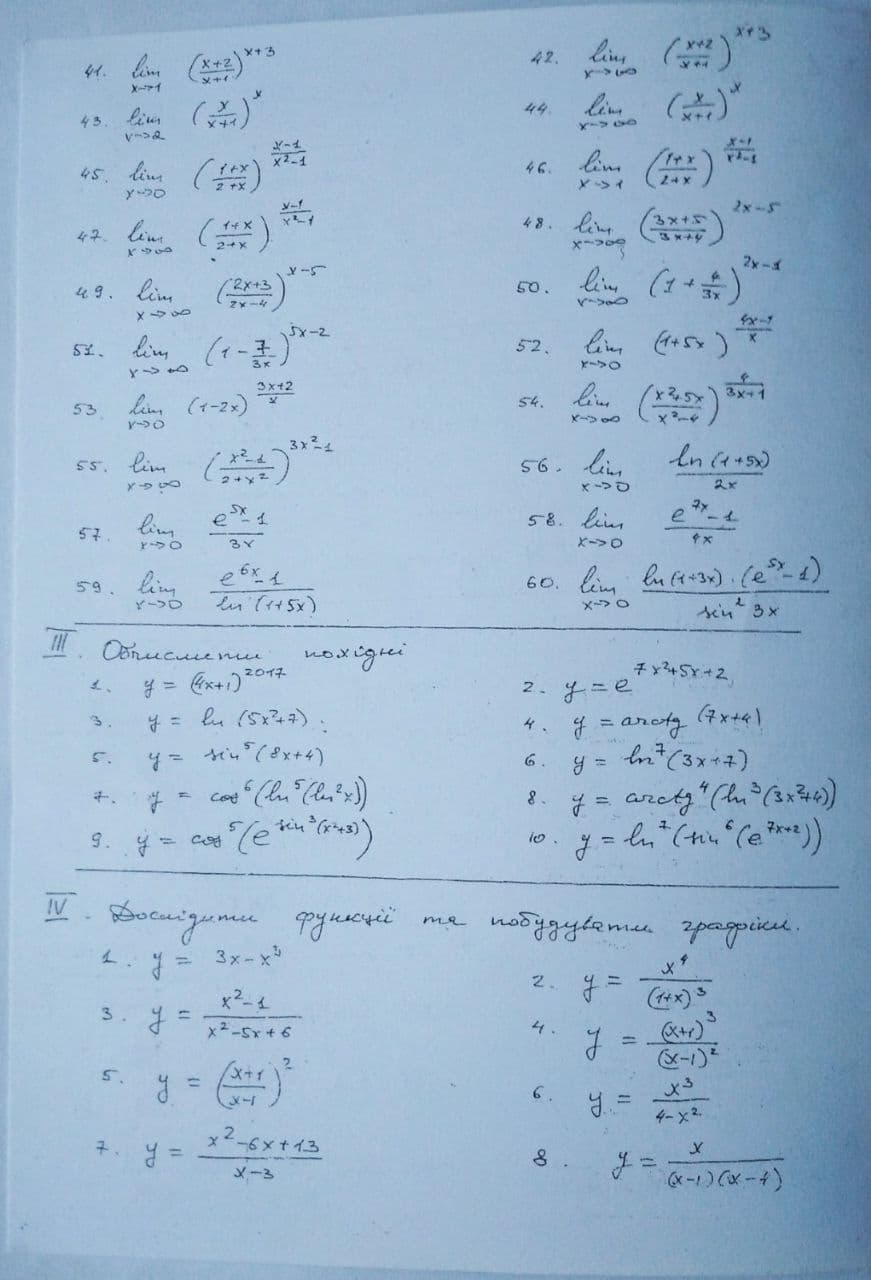 41. lim x->1 ((x+2)/(x+1))^(x+3) 42. lim x->∞ ((x+2)/(x+1))^(x+3)
43. lim x->2 (x/(x+1))^x 44. lim x->∞ (x/(x+1))^x
45. lim x->0 ((1+x)/(2+x))^((x-1)/(x²-1)) 46. lim x->1 ((1+x)/(2+x))^((x-1)/(x²-1))
47. lim x->∞ ((1+x)/(2+x))^((x-1)/(x²-1)) 48. lim x->∞ ((3x+5)/(3x+4))^(2x-5)
49. lim x->∞ ((2x+3)/(2x-4))^(x-5) 50. lim x->∞ (1+4/(3x))^(2x-1)
51. lim x->∞ (1-7/(3x))^(5x-2) 52. lim x->0 (1+5x)^((4x-1)/x)
53 lim x->0 (1-2x)^((3x+2)/x) 54. lim x->∞ ((x²+5x)/(x²-4))^(4/(3x+1))
55. lim x->∞ ((x²-1)/(2+x²))^(3x²-1) 56. lim x->0 ln(1+5x)/(2x)
57. lim x->0 (e^(5x)-1)/(3x) 58. lim x->0 (e^(7x)-1)/(4x)
59. lim x->0 (e^(6x)-1)/(ln(1+5x)) 60. lim x->0 (ln(1+3x)·(e^(5x)-1))/(sin² 3x)
III. Обчислити похідні
1. y = (4x+1)^2017 2. y = e^(7x²+5x+2)
3. y = ln (5x²+7). 4. y = arctg (7x+4)
5. y = sin⁵(8x+4) 6. y = ln⁷(3x+7)
7. y = cos⁶(ln⁵(ln²x)) 8. y = arcctg⁴(ln³(3x²+4))
9. y = cos⁵(e^(sin³(x²+3))) 10. y = ln⁷(sin⁶(e^(7x+2)))
IV. Дослідити функції та побудувати графіки.
1. y = 3x-x³ 2. y = x⁴/(1+x)³
3. y = (x²-1)/(x²-5x+6) 4. y = (x+1)³/(x-1)²
5. y = ((x+1)/(x-1))² 6. y = x³/(4-x²)
7. y = (x²-6x+13)/(x-3) 8. y = x/((x-1)(x-4))